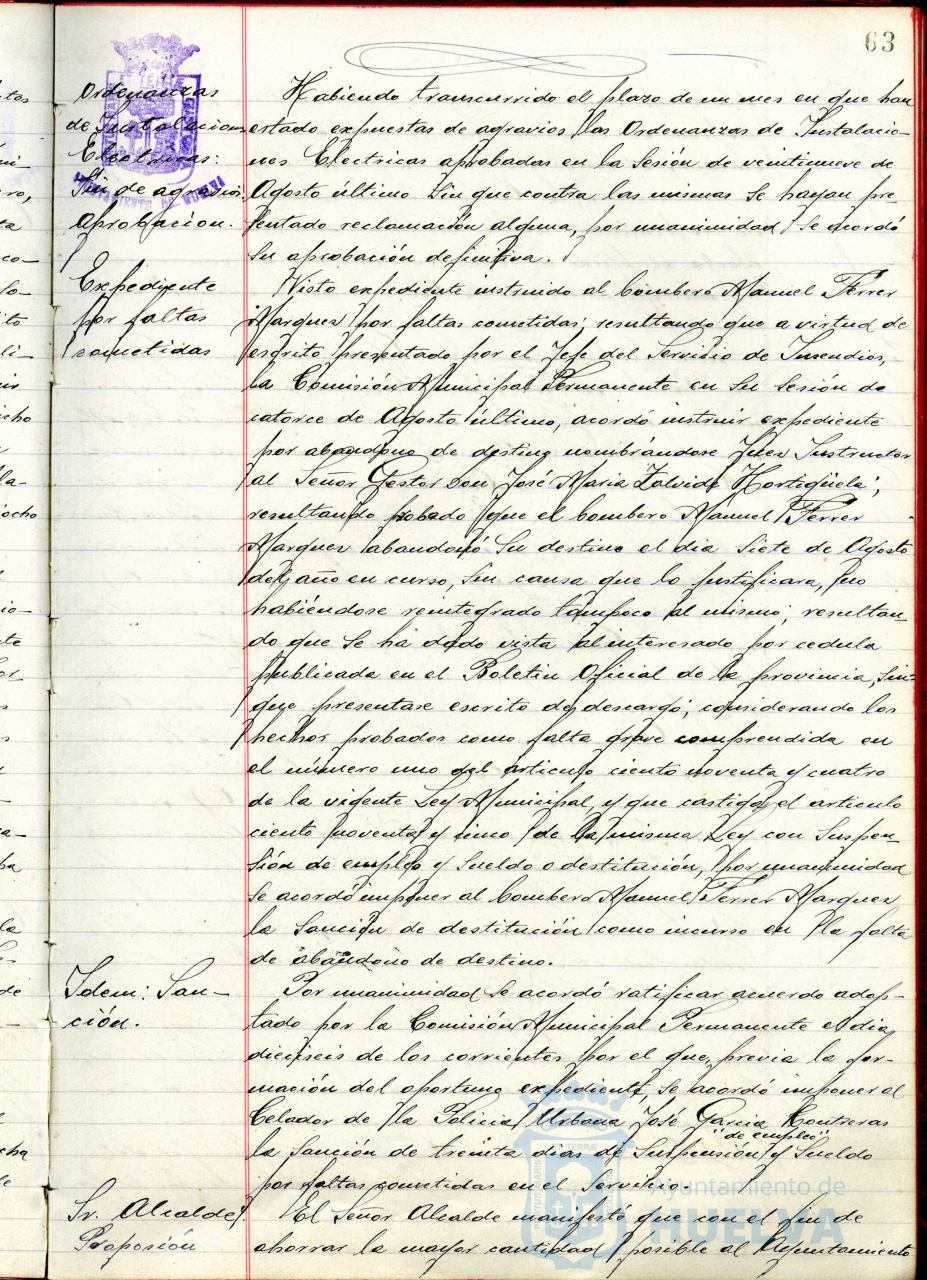 63
Ordenanzas
de Instalaciones
Eléctricas:
Sin de agravios.
Aprobación.
Habiendo transcurrido el plazo de un mes en que han
estado expuestas de agravios las Ordenanzas de Instalacio-
nes Electricas aprobadas en la Sesión de veintinueve de
Agosto último sin que contra las mismas se hayan pre-
sentado reclamación alguna, por unanimidad se acordó
su aprobación definitiva.
Expediente
por faltas
cometidas
Visto expediente instruido al bombero Manuel Ferrer
Marquez por faltas cometidas; resultando que a virtud de
escrito presentado por el Jefe del Servicio de Incendios,
la Comisión Municipal Permanente en su sesión de
catorce de Agosto último, acordó instruir expediente
por abandono de destino nombrándose Juez Instructor
al Señor Gestor Don José Maria Zalvide Hortigüela;
resultando probado que el bombero Manuel Ferrer
Marquez abandonó su destino el dia siete de Agosto
del año en curso, sin causa que lo justificara, no
habiéndose reintegrado tampoco al mismo; resultan
do que se ha dado vista al interesado por cedula
publicada en el Boletin Oficial de la provincia, sin-
que presentase escrito de descargo; considerando los
hechos probados como falta grave comprendida en
el número uno del articulo ciento noventa y cuatro
de la vigente Ley Municipal, y que castiga el articulo
ciento noventa y cinco de la misma Ley con suspen-
sión de empleo y sueldo o destitución, por unanimidad
se acordó imponer al bombero Manuel Ferrer Marquez
la Sanción de destitución como incurso en la falta
de abandono de destino.
Idem: San-
ción.
Por unanimidad se acordó ratificar acuerdo adop-
tado por la Comisión Municipal Permanente el dia
dieciseis de los corrientes por el que, previa la for-
mación del oportuno expediente, se acordó imponer al
Celador de la Policia Urbana José Garcia Contreras
"de empleo"
la Sanción de treinta dias de Suspensión y Sueldo
por faltas cometidas en el Servicio.
Sr. Alcalde.
Proposión
El Señor Alcalde manifestó que con el fin de
ahorrar la mayor cantidad posible al Ayuntamiento
Ayuntamiento de
HUELVA